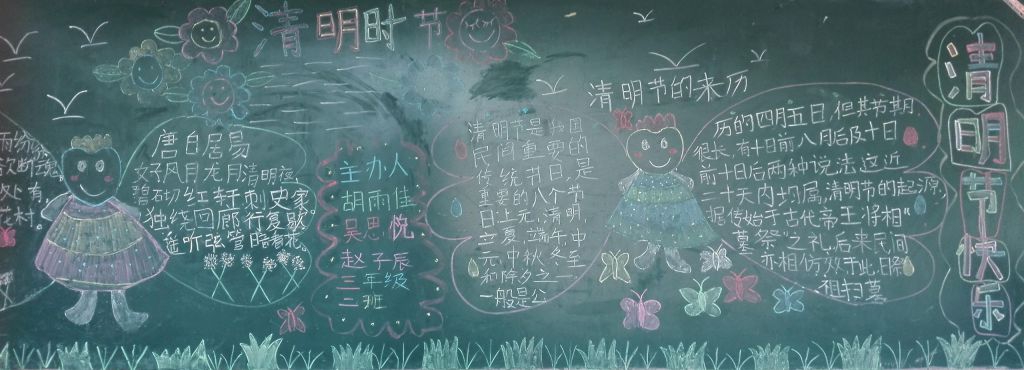 清明时节
雨纷纷
欲断魂
处有
村。
唐白居易
好风月龙月清明夜
碧砌红轩刺史家
独绕回廊行复歇。
遥听弦管暗看花。
主办人
胡雨佳
吴思悦
赵子辰
三年级
二班
清明节的来历
清明节是中国
民间重要的
传统节日，是
重要的八个节
日上元、清明、
立夏、端午、中
元、中秋、冬至
和除夕之一
一般是公
历的四月五日，但其节期
很长，有十日前八月后及十日
前十日后两种说法这近
二十天内均属清明节的起源，
据传始于古代帝王将相“
墓祭”之礼，后来民间
亦相仿效于此日祭
祖扫墓
清明节快乐